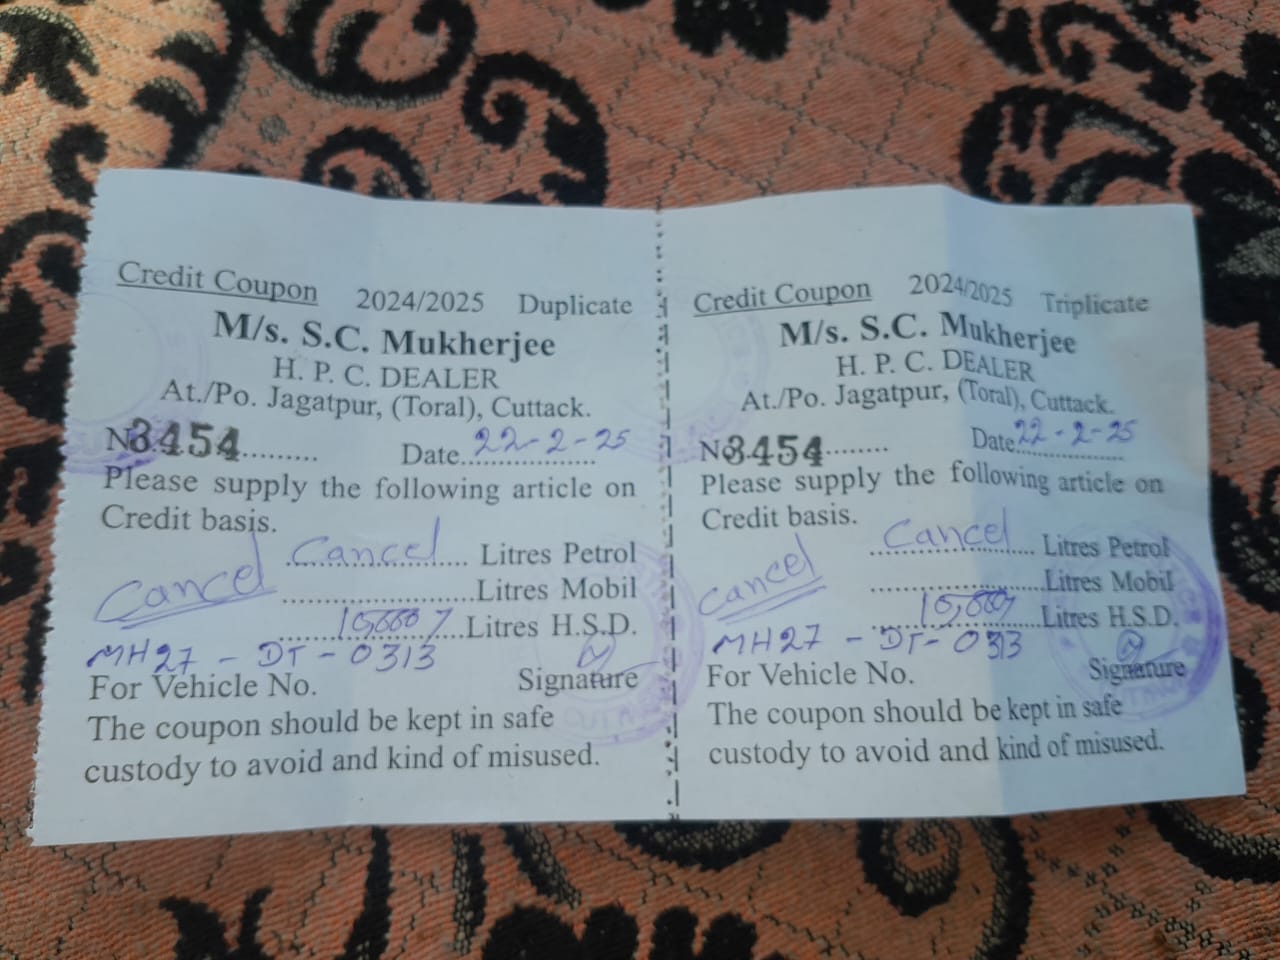 Credit Coupon 2024/2025 Duplicate
M/s. S.C. Mukherjee
H. P. C. DEALER
At./Po. Jagatpur, (Toral), Cuttack.
No 3454......... Date 22-2-25
Please supply the following article on
Credit basis.
Cancel Litres Petrol
Cancel
Litres Mobil
Litres H.S.D.
MH27 - DT - 0313
For Vehicle No. Signature
The coupon should be kept in safe
custody to avoid and kind of misused.
Credit Coupon 2024/2025 Triplicate
M/s. S.C. Mukherjee
H. P. C. DEALER
At./Po. Jagatpur, (Toral), Cuttack.
No 3454......... Date 22-2-25
Please supply the following article on
Credit basis.
Cancel Litres Petrol
Cancel
Litres Mobil
Litres H.S.D.
MH27 - DT - 0313
For Vehicle No. Signature
The coupon should be kept in safe
custody to avoid and kind of misused.